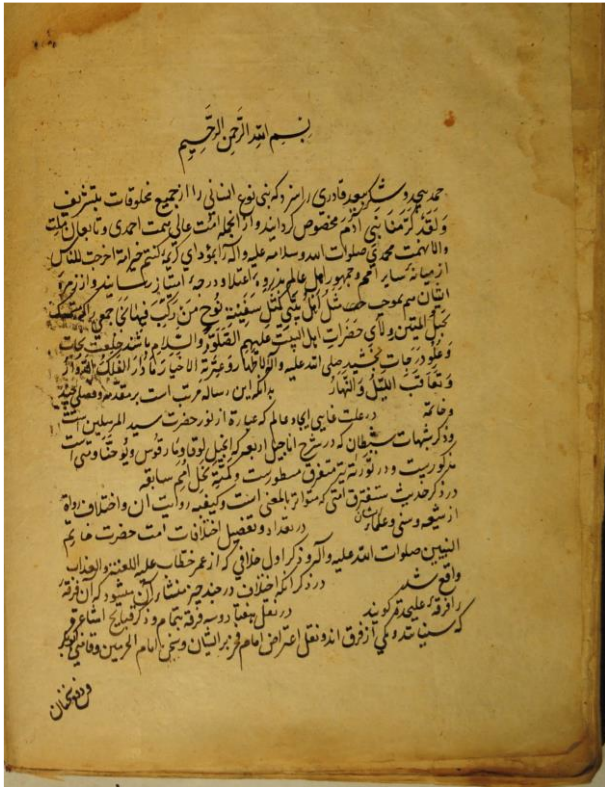 بسم الله الرحمن الرحيم
حمد بیحد و شکر بیعد قادری را سزد که بنی نوع انسانی را از جمیع مخلوقات بتشریف
وَلَقَدْ كَرَّمْنَا بَنِي آدَمَ مخصوص کردانید و از انجمله امت عالی سمت احمدی و تابعان ملت
والا نهمت محمدی صلوات الله وسلامه علیه وآله را بمؤدای کریمه کنتم خیر امة اخرجت للناس
از میانه سایر امم و جمهور اهل عالم بذروه اعتلا و درجه رسانید و از زمره
ایشان هم بموجب مَثَلُ اَهْلُ بَيْتِي كَمَثَلِ سَفِينَةِ نُوحٍ مَنْ رَكِبَ فِيهَا نَجَى جمعی را که متمسک
بحبل المتین ولای حضرات اهل البیت علیهم الصلوة والسلام باشند خلعت نجات
وعلو درجات بخشید صلی الله علیه وآله وعترة الاخیار مَا دَارَ الفَلَكُ الدَّوَّارُ
وَتَعَاقَبَ اللَّيْلُ وَالنَّهَارُ بدانکه این رساله مرتب است بر مقدمه و فصلی چند
و خاتمه در علت غایی ایجاد عالم که عبارة از نور حضرت سید المرسلین است
و ذکر شبهات شیطان که در شرح اناجیل اربعه که انجیل لوقا و مارقوس و یوحنا و متی است
مذکوریست و در تورته متفرق مسطور است و کمیّة نحل امم سابقه
در ذکر حدیث ستفترق امتی که متواتر بالمعنی است و کیفیه روایت آن و اختلاف رواة
از شیعه و سنی و علماء ایشان در تعداد و تفضیل اختلافات امت حضرت خاتم
النبیین صلوات الله علیه وآله و ذکر اول خلافی که از عمر خطاب علیه اللعنة والعذاب
واقع شد در ذکر آنکه اختلاف در چند چیز منشاء آن میشود که آن فرقه
را فرقهٔ علیحده کویند در نقل هفتاد و سه فرقه بتمام و ذکر قبایح اشاعره
که سنیانند و یکی از فرق اند و نقل اعتراض امام فخر بر ایشان و سخن امام الحرمین و قاضی ابوبکر